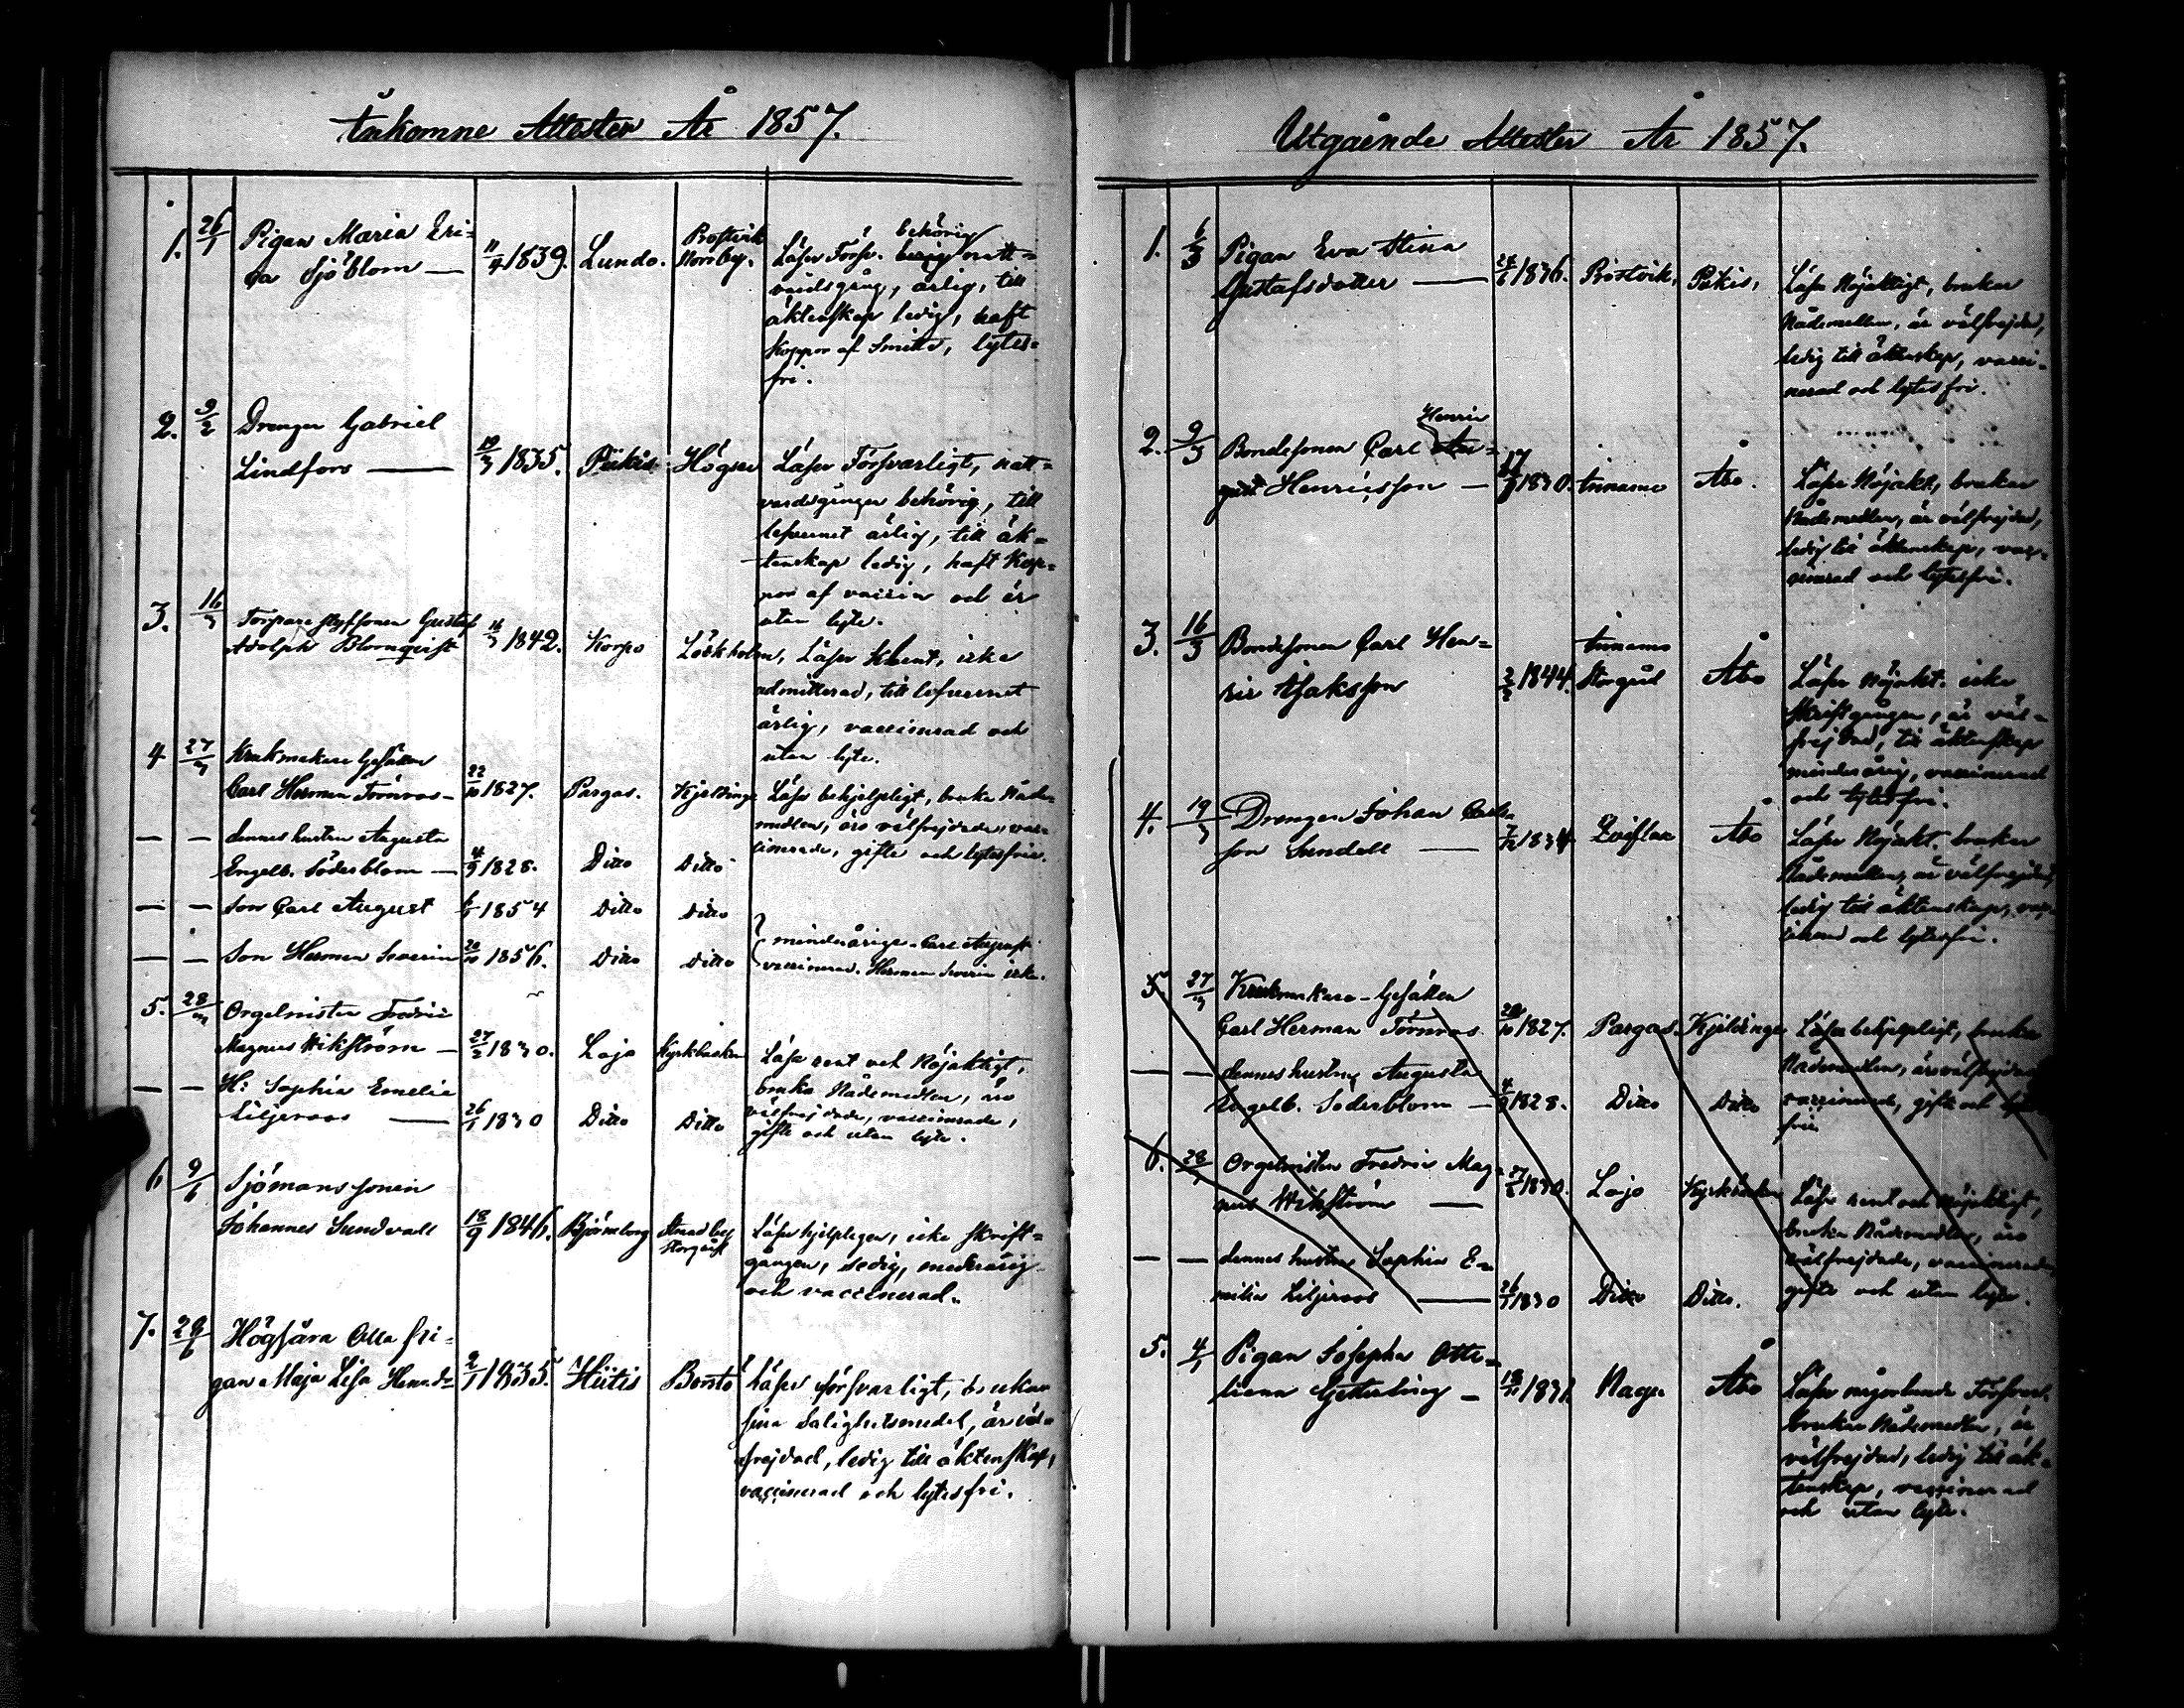 Inkomne Attester År 1857.
1. 26/1 Pigan Maria Eri=
ca Sjöblom — 11/4 1839. Lundo. Prostvik Norrby. Läser Förfv. behörig natt=
vardsgång, ärlig, till
äktenskap ledig, haft
Koppor af Smitta, lytes=
fri.
2. 9/2 Drengen Gabriel
Lindfors — 19/3 1835. Piikis Högsar Läser Försvarligt, natt=
vardsgången behörig, till
lefvernet ärlig, till äk=
tenskap ledig, haft Kop=
por af vaccin och är
utan lyte.
3. 16/3 Torpare styfsonen Gustaf
Adolph Blomqvist 16/3 1842. Korpo Lökholm, Läser klent, icke
admitterad, till lefvernet
ärlig, vaccinerad och
utan lyte.
4 27/3 Krukmakare Gesällen
Carl Herman Törnroos — 22/10 1827. Pargas. Kjeldinge Läser behjelpligt, bruka Nåde=
medlen, äro välfrejdade, vac=
cinerade, gifte och lytesfria.
— — dennes hustru Augusta
Engelb. Söderblom — 4/9 1828. Ditto Ditto
— — Son Carl August 1854 Ditto Ditto
— — Son Herman Severin 20/10 1856. Ditto Ditto minderårige. Carl August
vaccinerad. Herman Severin icke.
5. 28/3 Orgelnisten Fredric
Magnus Wikström — 27/2 1830. Lojo Kyrkbacken Läsa rent och Nöjaktigt,
bruka Nådemedlen, äro
välfrejdade, vaccinerade,
gifte och utan lyte.
— — H: Sophia Emelie
Liljeroos — 26/1 1830 Ditto Ditto
6 9/6 Sjömanssonen
Johannes Sundvall 18/9 1846. Björneborg Storgård Läser hjelpligen, icke skrift=
gången, ledig, minderårig
och vaccinerad.
7. 29/6 Högsåra Olla Pi=
gan Maja Lisa Henrd= 2/1 1835. Hiitis Borstö Läser försvarligt, brukar
sina Salighetsmedel, är väl=
frejdad, ledig till äktenskap,
vaccinerad och lytesfri.
Utgående Attester År 1857.
1. 6/3 Pigan Eva Stina
Gustafsdotter — 24/6 1836. Prostvik, Pikis, Läser Nöjaktigt, brukar
Nådemedlen, är välfrejdad,
ledig till äktenskap, vacci=
nerad och lytesfri.
2. 9/3 Bondesonen Carl Henric
Henricsson — 17 1830. Innamo Åbo. Läser Nöjakt., brukar
Nådemedlen, är välfrejdad,
ledig till äktenskap, vac=
cinerad och lytesfri.
3. 16/3 Bondesonen Carl Hen=
ric Isaksson 2/2 1844. Innamo Storgård Åbo Läser Nöjakt. icke
Skriftgången, är väl=
frejdad, till äktenskap
minderårig, vaccinerad
och lytesfri.
4. 19/3 Drengen Johan Carls
son Sundell — 7/12 1834 Åbo Läser Nöjakt. brukar
Nådemedlen, är välfrejdad,
ledig till äktenskap, vac=
cinerad och lytesfri.
5. 27/3 Krukmakare-Gesällen
Carl Herman Törnroos 1827. Pargas. Kjeldinge Läsa behjelpligt, bruka
Nådemedlen, äro välfrejdade
vaccinerade, gifte och lytes
fria.
— — dennes hustru Augusta
Engelb. Söderblom — 4/9 1828. Ditto Ditto
6. 28/3 Orgelnisten Fredric Mag=
nus Wikström — 27/2 1830. Lojo Kyrkbacken Läsa rent och nöjaktigt,
bruka Nådemedlen, äro
välfrejdade, vaccinerade,
gifte och utan lyte.
— — dennes hustru Sophia E=
milia Liljeroos — 26/1 1830 Ditto Ditto.
5. 4/1 Pigan Josepha Otti=
liana — 1831 Nagu Åbo Läser någorlunda Försvarl.
brukar Nådemedlen, är
välfrejdad, ledig till äk=
tenskap, vaccinerad
och utan lyte.